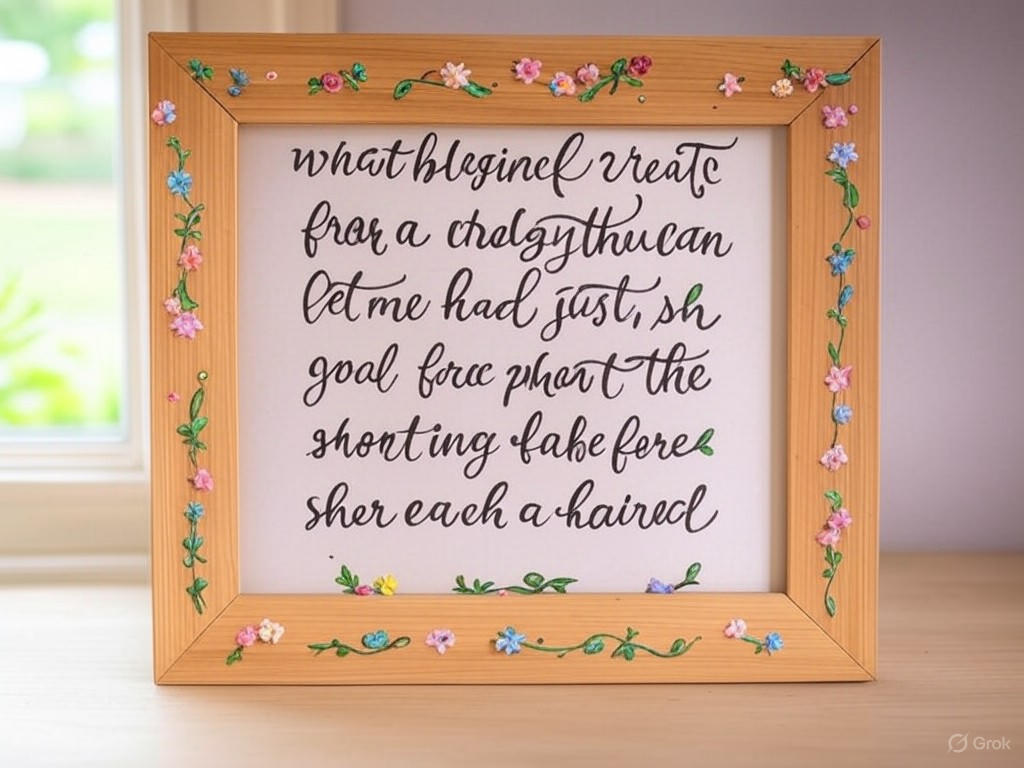 what blegined vreatc
frar a chelgythucan
let me had just, sh
goal forcc phant the
shonting fabe fere
sher eaeh a haired
Grok